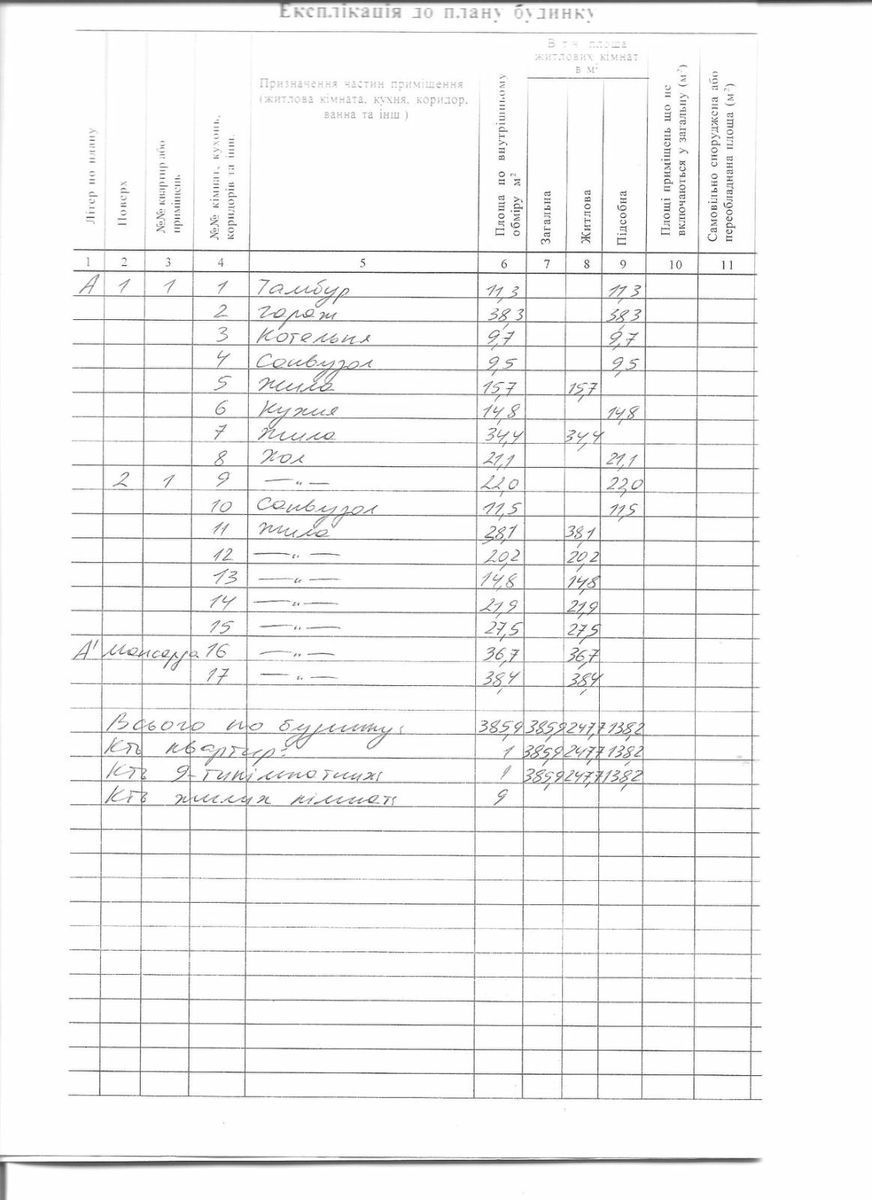 Експлікація до плану будинку
Літер по плану
Поверх
№№ квартир або приміщень
№№ кімнат, кухонь, коридорів та інш.
Призначення частин приміщення
(житлова кімната, кухня, коридор,
ванна та інш )
Площа по внутрішньому обміру м²
В т ч площа
житлових кімнат
в м²
Загальна
Житлова
Підсобна
Площі приміщень що не включаються у загальну (м²)
Самовільно споруджена або переобладнана площа (м²)
1 2 3 4 5 6 7 8 9 10 11
А 1 1 1 Тамбур 11,3 11,3
2 гараж 38,3 38,3
3 Котельня 9,7 9,7
4 Санвузол 9,5 9,5
5 Жила 15,7 15,7
6 Кухня 14,8 14,8
7 Жила 34,4 34,4
8 Хол 21,1 21,1
2 1 9 —„— 22,0 22,0
10 Санвузол 11,5 11,5
11 Жила 38,1 38,1
12 —„— 20,2 20,2
13 —„— 14,8 14,8
14 —„— 21,9 21,9
15 —„— 27,5 27,5
А' Мансарда 16 —„— 36,7 36,7
17 —„— 38,4 38,4
Всього по будинку: 385,9 385,9 247,7 138,2
К-ть квартир: 1 385,9 247,7 138,2
К-ть 9-тикімнатних 1 385,9 247,7 138,2
К-ть жилих кімнат: 9